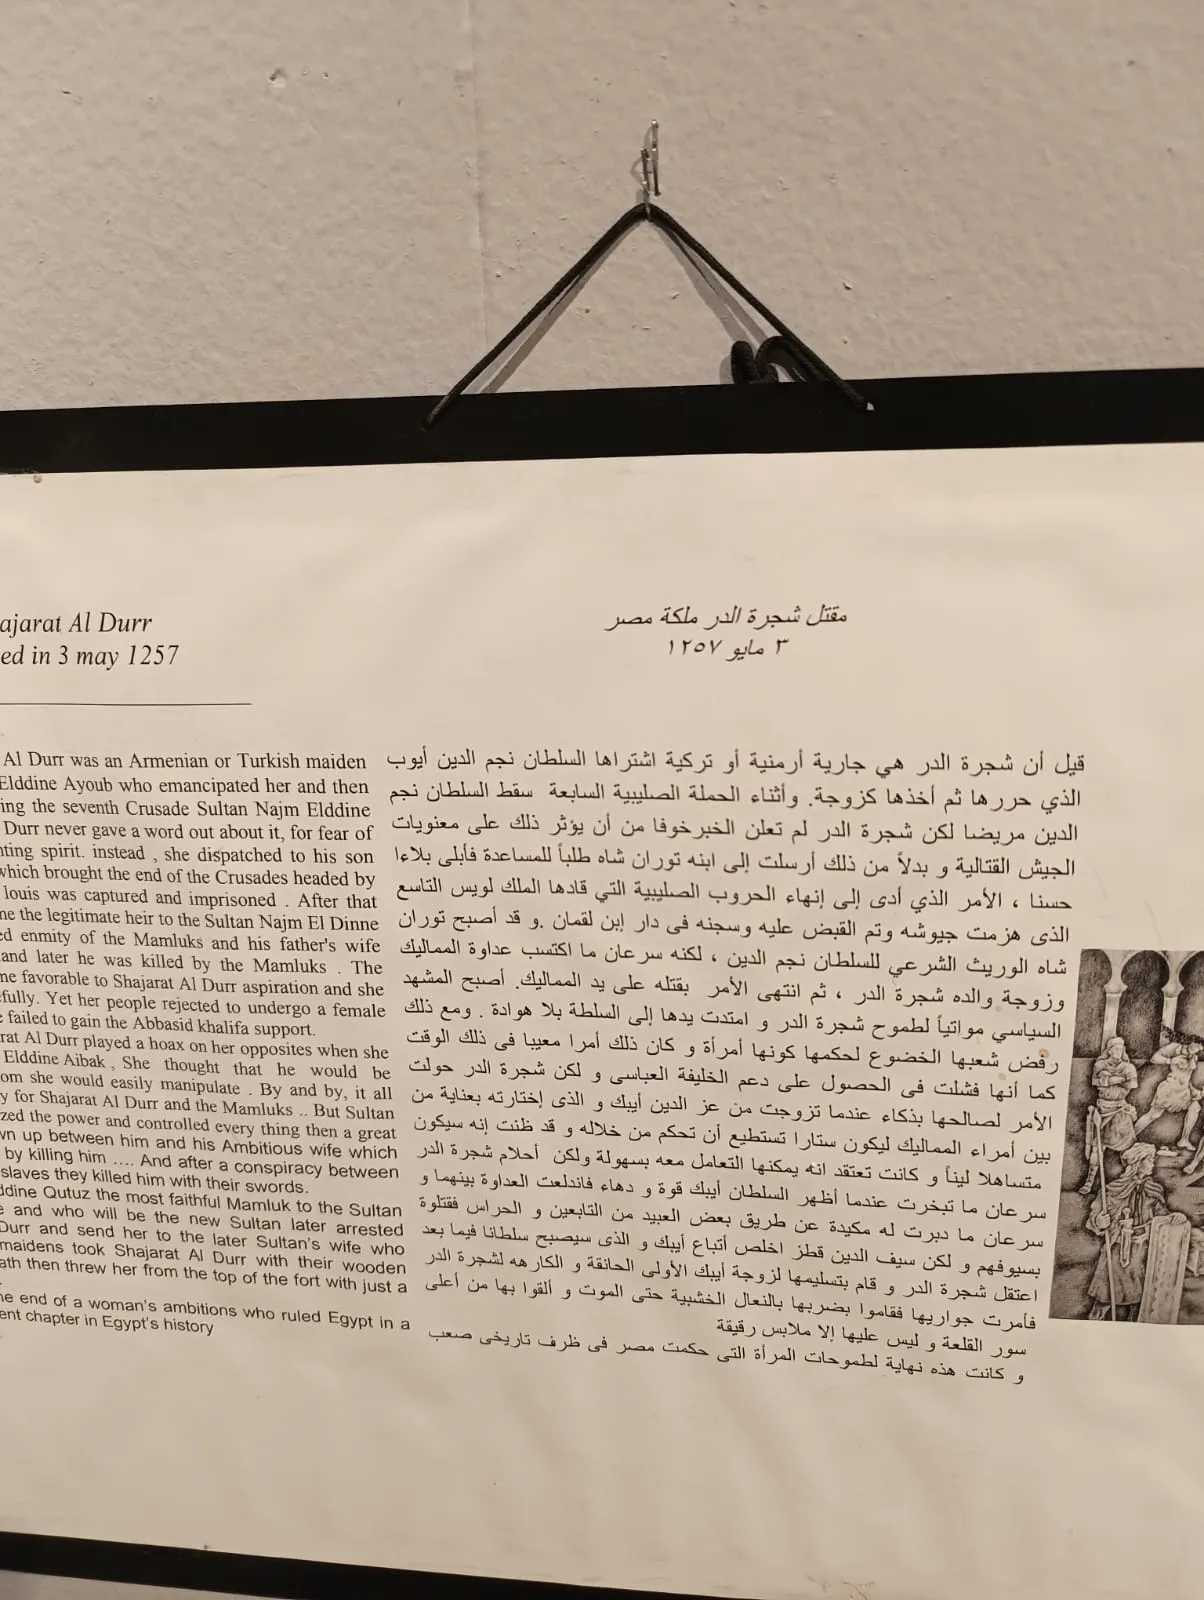 ajarat Al Durr
ed in 3 may 1257
Al Durr was an Armenian or Turkish maiden
Elddine Ayoub who emancipated her and then
ing the seventh Crusade Sultan Najm Elddine
Durr never gave a word out about it, for fear of
nting spirit. instead , she dispatched to his son
which brought the end of the Crusades headed by
louis was captured and imprisoned . After that
ne the legitimate heir to the Sultan Najm El Dinne
ed enmity of the Mamluks and his father's wife
and later he was killed by the Mamluks . The
ne favorable to Shajarat Al Durr aspiration and she
fully. Yet her people rejected to undergo a female
failed to gain the Abbasid khalifa support.
rat Al Durr played a hoax on her opposites when she
Elddine Aibak , She thought that he would be
om she would easily manipulate . By and by, it all
y for Shajarat Al Durr and the Mamluks .. But Sultan
zed the power and controlled every thing then a great
wn up between him and his Ambitious wife which
by killing him .... And after a conspiracy between
slaves they killed him with their swords.
ddine Qutuz the most faithful Mamluk to the Sultan
e and who will be the new Sultan later arrested
Durr and send her to the later Sultan's wife who
maidens took Shajarat Al Durr with their wooden
ath then threw her from the top of the fort with just a
he end of a woman's ambitions who ruled Egypt in a
ent chapter in Egypt's history
مقتل شجرة الدر ملكة مصر
٣ مايو ١٢٥٧
قيل أن شجرة الدر هي جارية أرمنية أو تركية اشتراها السلطان نجم الدين أيوب
الذي حررها ثم أخذها كزوجة. وأثناء الحملة الصليبية السابعة سقط السلطان نجم
الدين مريضا لكن شجرة الدر لم تعلن الخبرخوفا من أن يؤثر ذلك على معنويات
الجيش القتالية و بدلاً من ذلك أرسلت إلى ابنه توران شاه طلباً للمساعدة فأبلى بلاءا
حسنا ، الأمر الذي أدى إلى إنهاء الحروب الصليبية التي قادها الملك لويس التاسع
الذى هزمت جيوشه وتم القبض عليه وسجنه فى دار إبن لقمان .و قد أصبح توران
شاه الوريث الشرعي للسلطان نجم الدين ، لكنه سرعان ما اكتسب عداوة المماليك
وزوجة والده شجرة الدر ، ثم انتهى الأمر بقتله على يد المماليك. أصبح المشهد
السياسي مواتياً لطموح شجرة الدر و امتدت يدها إلى السلطة بلا هوادة . ومع ذلك
رفض شعبها الخضوع لحكمها كونها أمرأة و كان ذلك أمرا معيبا فى ذلك الوقت
كما أنها فشلت فى الحصول على دعم الخليفة العباسى و لكن شجرة الدر حولت
الأمر لصالحها بذكاء عندما تزوجت من عز الدين أيبك و الذى إختارته بعناية من
بين أمراء المماليك ليكون ستارا تستطيع أن تحكم من خلاله و قد ظنت إنه سيكون
متساهلا ليناً و كانت تعتقد انه يمكنها التعامل معه بسهولة ولكن أحلام شجرة الدر
سرعان ما تبخرت عندما أظهر السلطان أيبك قوة و دهاء فاندلعت العداوة بينهما و
سرعان ما دبرت له مكيدة عن طريق بعض العبيد من التابعين و الحراس فقتلوة
بسيوفهم و لكن سيف الدين قطز اخلص أتباع أيبك و الذى سيصبح سلطانا فيما بعد
اعتقل شجرة الدر و قام بتسليمها لزوجة أيبك الأولى الحانقة و الكارهه لشجرة الدر
فأمرت جواريها فقاموا بضربها بالنعال الخشبية حتى الموت و ألقوا بها من أعلى
سور القلعة و ليس عليها إلا ملابس رقيقة
و كانت هذه نهاية لطموحات المرأة التى حكمت مصر فى ظرف تاريخى صعب